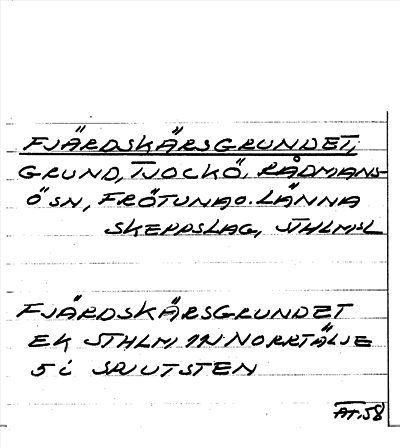 FJÄRDSKÄRSGRUNDET,
GRUND, TJOCKÖ, RÅDMANS-
Ö SN, FRÖTUNA O. LÄNNA
SKEPPSLAG, STHLMSL
FJÄRDSKÄRSGRUNDET
EK STHLM 12N NORRTÄLJE
5 i SPJUTSTEN
AT. 58